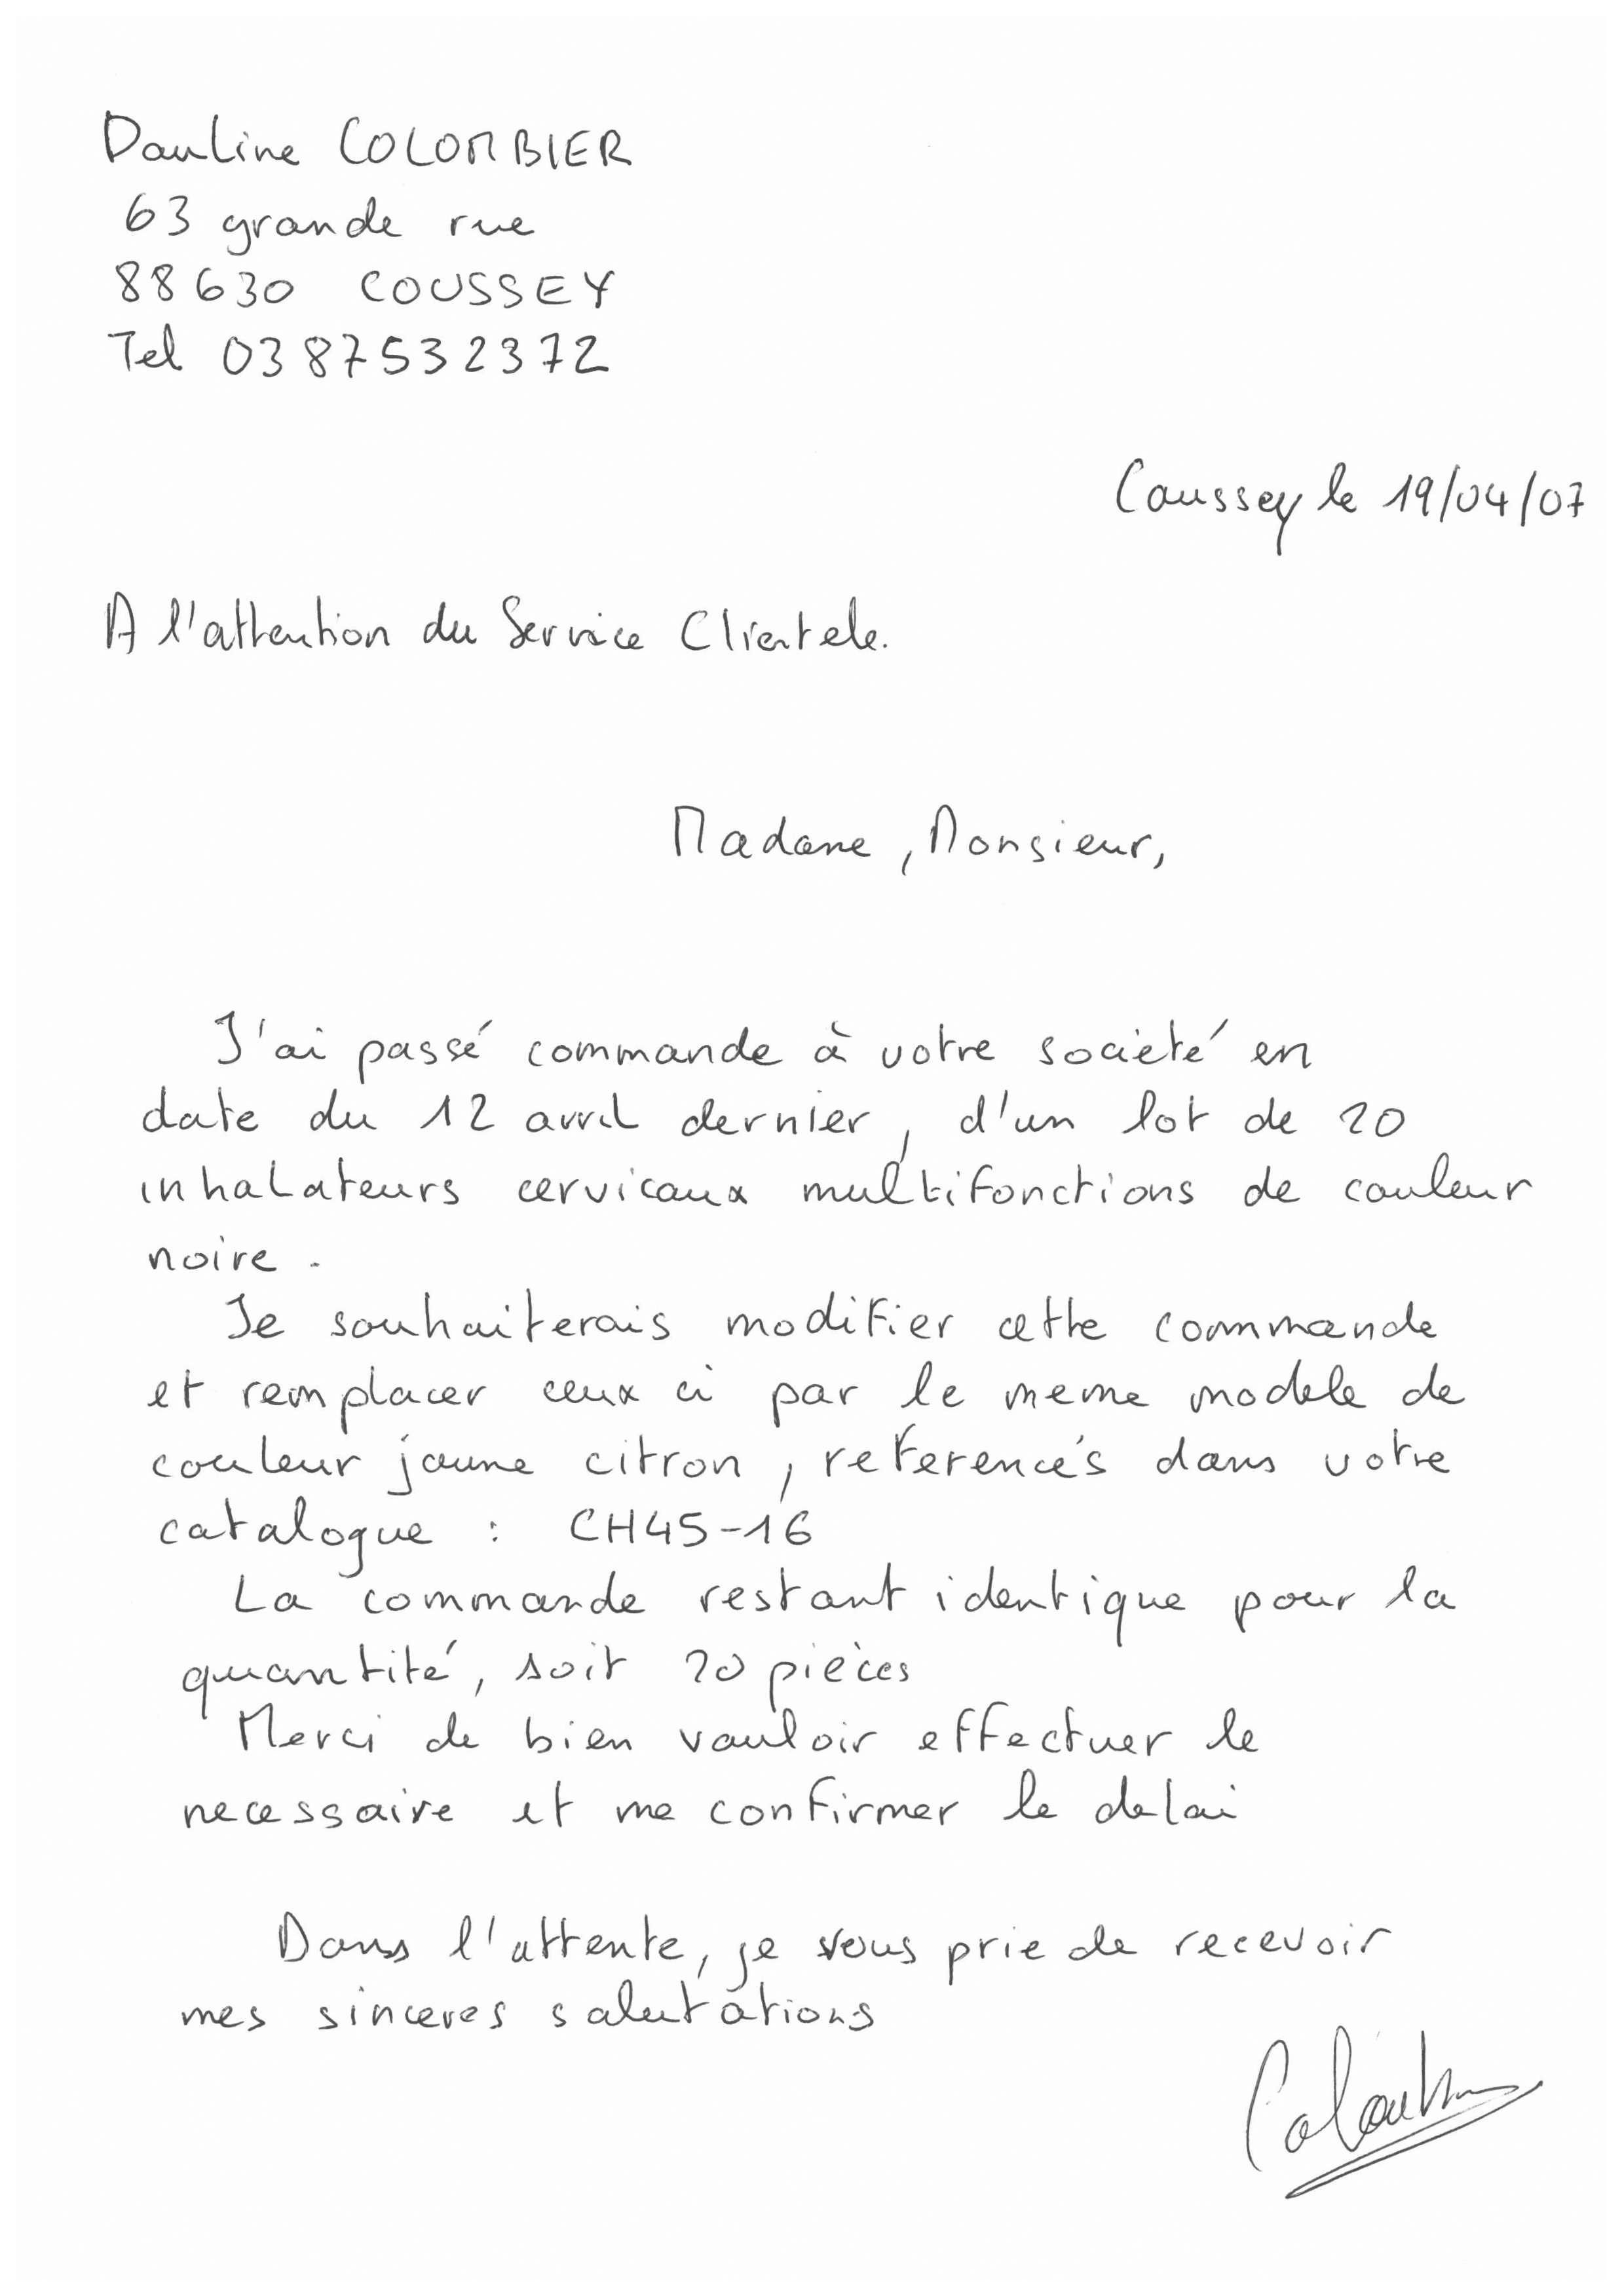 Pauline COLOMBIER
63 grande rue
88630 COUSSEY
Tel 0387532372
Coussey le 19/04/07
A l'attention du Service Clientele.
Madame, Monsieur,
J'ai passé commande à votre société en
date du 12 avril dernier, d'un lot de 20
inhalateurs cervicaux multifonctions de couleur
noire.
Je souhaiterais modifier cette commande
et remplacer ceux ci par le meme modele de
couleur jaune citron, referencés dans votre
catalogue : CH45-16
La commande restant identique pour la
quantité, soit 20 pièces
Merci de bien vouloir effectuer le
necessaire et me confirmer le delai
Dans l'attente, je vous prie de recevoir
mes sinceres salutations